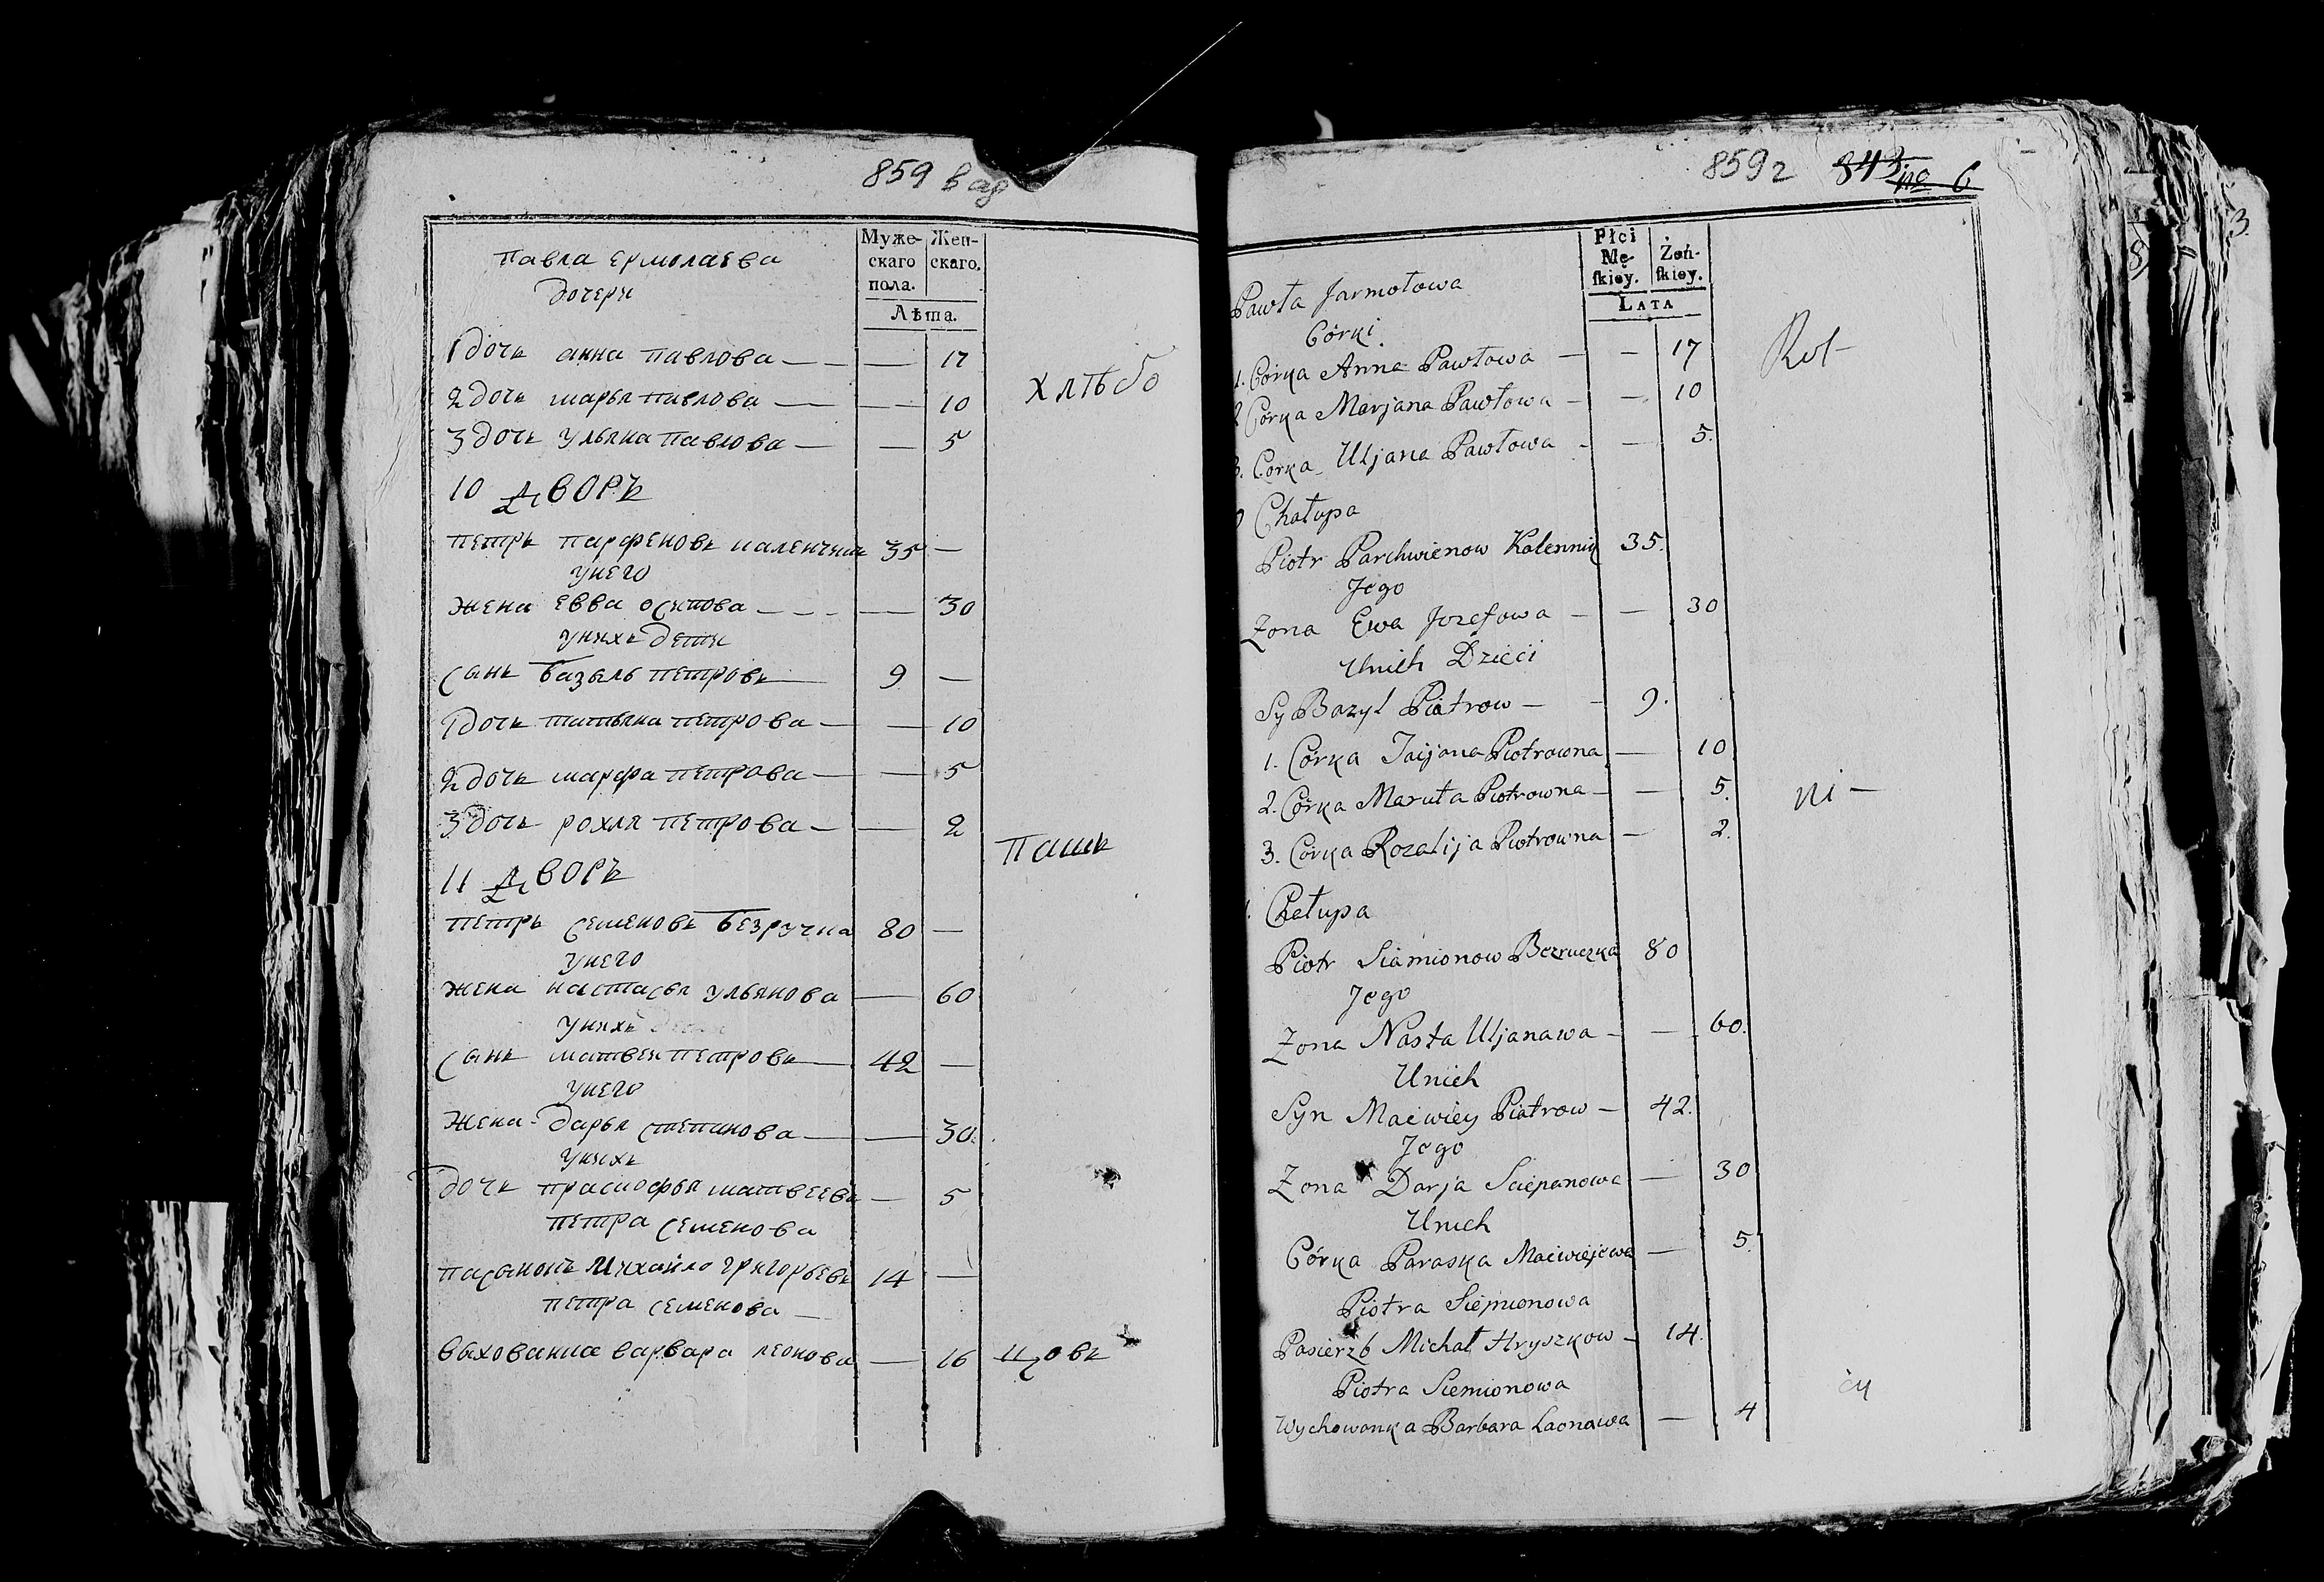 859 в об
Муже- Жен-
скаго скаго.
пола.
Лѣта.
Павла Ермолаева
дочери
1 дочь анна павлова — — 17
2 дочь марья павлова — — 10
3 дочь ульяна павлова — — 5
хлѣбо
10 дворъ
петръ парфеновъ каленчик 35 —
у него
жена евва осипова — — 30
у нихъ дети
сынъ базыль петровъ — 9 —
1 дочь татьяна петрова — — 10
2 дочь марфа петрова — — 5
3 дочь рохля петрова — — 2
паш
11 дворъ
петръ семеновъ безручка 80 —
у него
жена настасья ульянова — 60
у нихъ
сынъ матвеи петровъ — 42 —
у него
жена дарья степанова — — 30
у нихъ
дочь праскофья матвеева — 5
петра семенова
пасынокъ михайло григорьевъ 14 —
петра семенова —
выхованка варвара леонова — 16
цовъ
859 г 843 6
Płci Żeń-
Mę- ſkiey.
ſkiey.
LATA
Pawła Jarmołowa
Córki
1. Córka Anna Pawłowa — — 17
2 Córka Marjana Pawłowa — — 10
3. Córka Uljana Pawłowa - — 5.
Rol-
Chałupa
Piotr Parchwienow Kalennik 35.
Jego
Zona Ewa Jozefowa — — 30
Unich Dzieci
Sy Bazyl Piatrow — - 9.
1. Córka Taijana Piotrowna — 10
2. Córka Maruta Piotrowna — — 5.
3. Córka Rozalija Piotrowna — 2.
ni —
Chałupa
Piotr Siamionow Bezruczka 80
Jego
Zona Nasta Uljanawa — — 60.
Unich
Syn Maćwiey Piatrow — 42.
Jego
Zona Darja Sciepanowa — 30
Unich
Córka Paraska Maćwiejewa — 5.
Piotra Siemionowa
Pasierzb Michał Hryszkow — 14.
Piotra Siemionowa
Wychowanka Barbara Laonawa — 4
cy